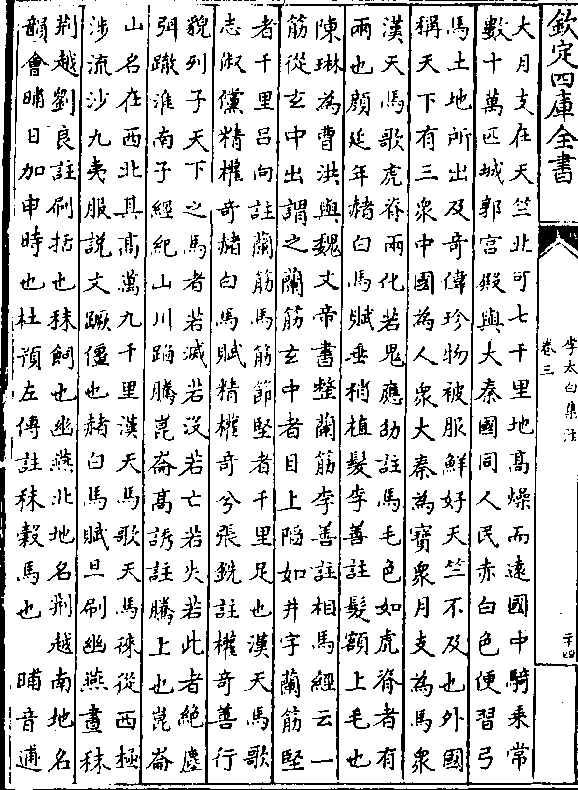 欽定四庫全書
李太白集注
卷三
二十四
大月支在天竺北可七千里地髙燥而逺國中騎乘常
數十萬匹城郭宫殿與大秦國同人民赤白色便習弓
馬土地所出及奇偉珍物被服鮮好天竺不及也外國
稱天下有三衆中國為人衆大秦為寳衆月支為馬衆
漢天馬歌虎脊兩化若鬼應劭註馬毛色如虎脊者有
兩也顔延年赭白馬賦垂梢植髮李善註髮額上毛也
陳琳為曹洪與魏文帝書整蘭筋李善註相馬經云一
筋從𤣥中出謂之蘭筋𤣥中者目上陷如井字蘭筋堅
者千里吕向註蘭筋馬筋節堅者千里足也漢天馬歌
志俶儻精權奇赭白馬賦精權奇兮張銑註權奇善行
貌列子天下之馬者若滅若没若亡若失若此者絶塵
弭轍淮南子經紀山川蹈騰崑崙髙誘註騰上也崑崙
山名在西北其髙萬九千里漢天馬歌天馬徠從西極
涉流沙九夷服説文蹶僵也赭白馬賦旦刷幽燕晝秣
荆越劉良註刷括也秣飼也幽燕北地名荆越南地名
韻會晡日加申時也杜預左傳註秣榖馬也　晡音逋